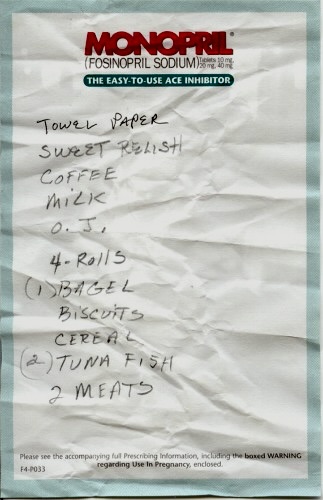 MONOPRIL®
(FOSINOPRIL SODIUM) Tablets 10 mg, 20 mg, 40 mg
THE EASY-TO-USE ACE INHIBITOR
TOWEL PAPER
SWEET RELISH
COFFEE
MILK
O.J.
4-ROllS
(1) BAGEL
BISCUITS
CEREAL
(2) TUNA FISH
2 MEATS
Please see the accompanying full Prescribing Information, including the boxed WARNING
regarding Use In Pregnancy, enclosed.
F4-P033